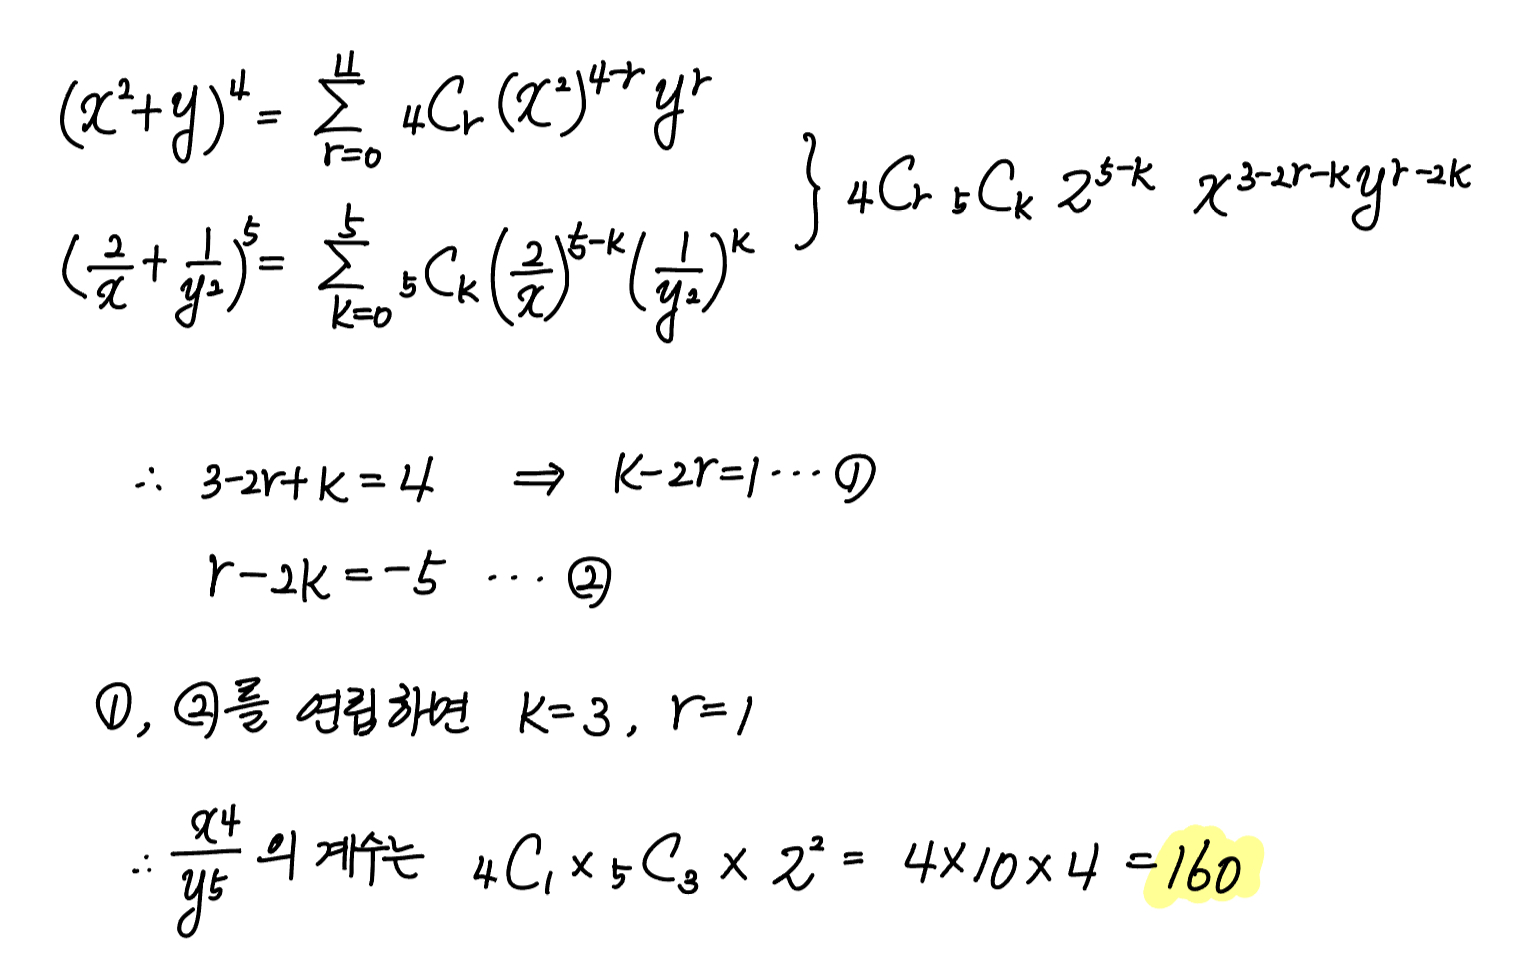 (x²+y)⁴ = Σ_{r=0}^{4} ₄Cᵣ (x²)^{4-r} y^r
(2/x + 1/y²)⁵ = Σ_{k=0}^{5} ₅Cₖ (2/x)^{5-k} (1/y²)^k
} ₄Cᵣ ₅Cₖ 2^{5-k} x^{3-2r-k} y^{r-2k}
∴ 3-2r+k=4 ⇒ k-2r=1 ··· ①
r-2k=-5 ··· ②
①, ②를 연립하면 k=3, r=1
∴ x⁴/y⁵ 의 계수는 ₄C₁ × ₅C₃ × 2² = 4×10×4 = 160